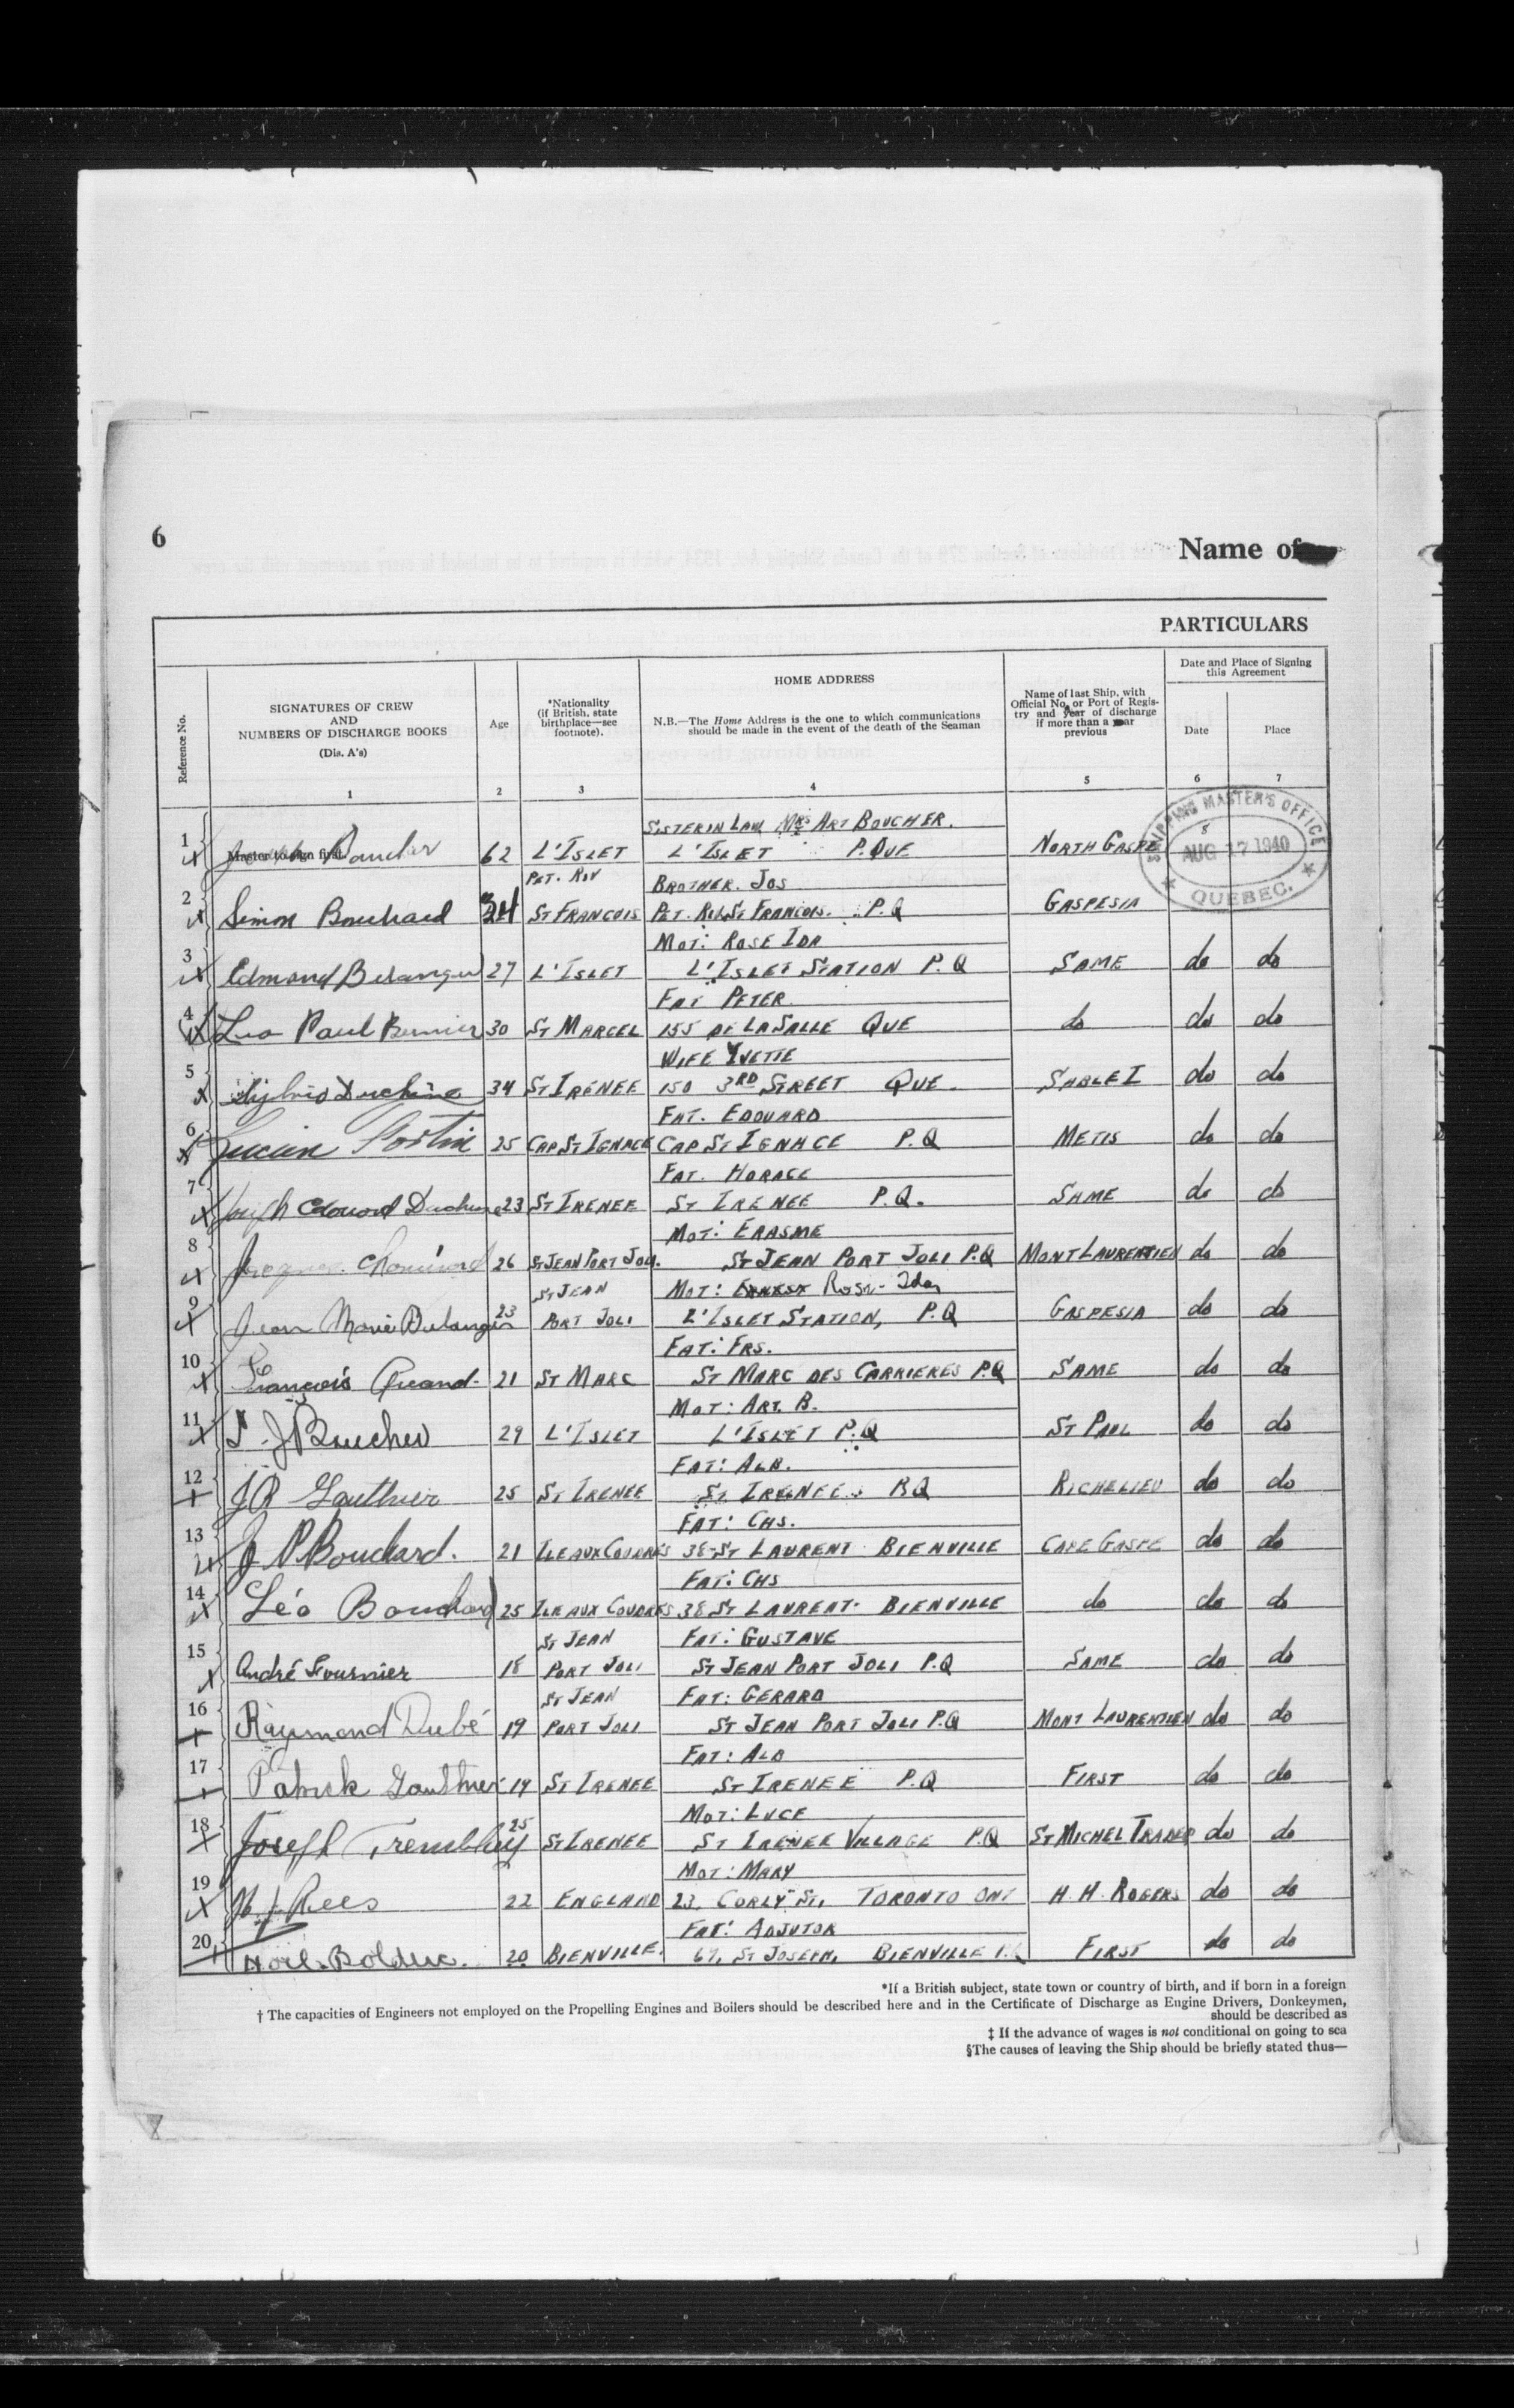 6
Name of
PARTICULARS
Reference No.
SIGNATURES OF CREW
AND
NUMBERS OF DISCHARGE BOOKS
(Dis. A's)
1
Age
2
*Nationality
(if British, state
birthplace—see
footnote).
3
HOME ADDRESS
N.B.—The Home Address is the one to which communications
should be made in the event of the death of the Seaman
4
Name of last Ship, with
Official No. or Port of Regis-
try and year of discharge
if more than a year
previous
5
Date and Place of Signing
this Agreement
Date
6
Place
7
SHIPPING MASTER'S OFFICE
AUG 17 1940
QUEBEC.
SISTER IN LAW MRS ART BOUCHER.
1 Master to sign first. Boucher 62 L'ISLET L'ISLET P.QUE NORTH GASPE
PET. RIV BROTHER. JOS
2 Simon Bouchard 34 ST FRANCOIS PET. RIV. ST FRANCOIS. P.Q GASPESIA
MOT: ROSE IDA
3 Edmond Belanger 27 L'ISLET L'ISLET STATION P.Q SAME do do
FAT PETER
4 Leo Paul Bernier 30 ST MARCEL 155 DE LA SALLE QUE do do do
WIFE YVETTE
5 Duchène 34 ST IRENEE 150 3RD STREET QUE. SABLE I do do
FAT. EDOUARD
6 Lucien Fortin 25 CAP ST IGNACE CAP ST IGNACE P.Q METIS do do
FAT. HORACE
7 Joseph Edouard Duchene 23 ST IRENEE ST IRENEE P.Q. SAME do do
MOT: ERASME
8 Jacques Chouinard 26 ST JEAN PORT JOLI. ST JEAN PORT JOLI P.Q MONT LAURENTIEN do do
ST JEAN MOT: Rose-Ida
9 Jean Marie Belanger 23 PORT JOLI L'ISLET STATION, P.Q GASPESIA do do
FAT: FRS.
10 François 21 ST MARC ST MARC DES CARRIERES P.Q SAME do do
MOT: ART. B.
11 J. Boucher 29 L'ISLET L'ISLET P.Q ST PAUL do do
FAT: ALB.
12 Gauthier 25 ST IRENEE ST IRENEE P.Q RICHELIEU do do
FAT: CHS.
13 J P Bouchard. 21 ILE AUX COUDRES 38 ST LAURENT BIENVILLE CAPE GASPE do do
FAT: CHS
14 Léo Bouchard 25 ILE AUX COUDRES 38 ST LAURENT BIENVILLE do do do
ST JEAN FAT: GUSTAVE
15 André Fournier 18 PORT JOLI ST JEAN PORT JOLI P.Q SAME do do
ST JEAN FAT: GERARD
16 Raymond Dubé 19 PORT JOLI ST JEAN PORT JOLI P.Q MONT LAURENTIEN do do
FAT: ALB
17 Patrick Gauthier 19 ST IRENEE ST IRENEE P.Q FIRST do do
MOT: LUCE
18 Joseph Tremblay 25 ST IRENEE ST IRENEE VILLAGE P.Q ST MICHEL TRADER do do
MOT: MARY
19 Rees 22 ENGLAND 23, ST, TORONTO ONT H. H. ROGERS do do
FAT: ADJUTOR
20 Noel Bolduc. 20 BIENVILLE. 67, ST JOSEPH, BIENVILLE P.Q FIRST do do
*If a British subject, state town or country of birth, and if born in a foreign
† The capacities of Engineers not employed on the Propelling Engines and Boilers should be described here and in the Certificate of Discharge as Engine Drivers, Donkeymen,
should be described as
‡ If the advance of wages is not conditional on going to sea
§The causes of leaving the Ship should be briefly stated thus—